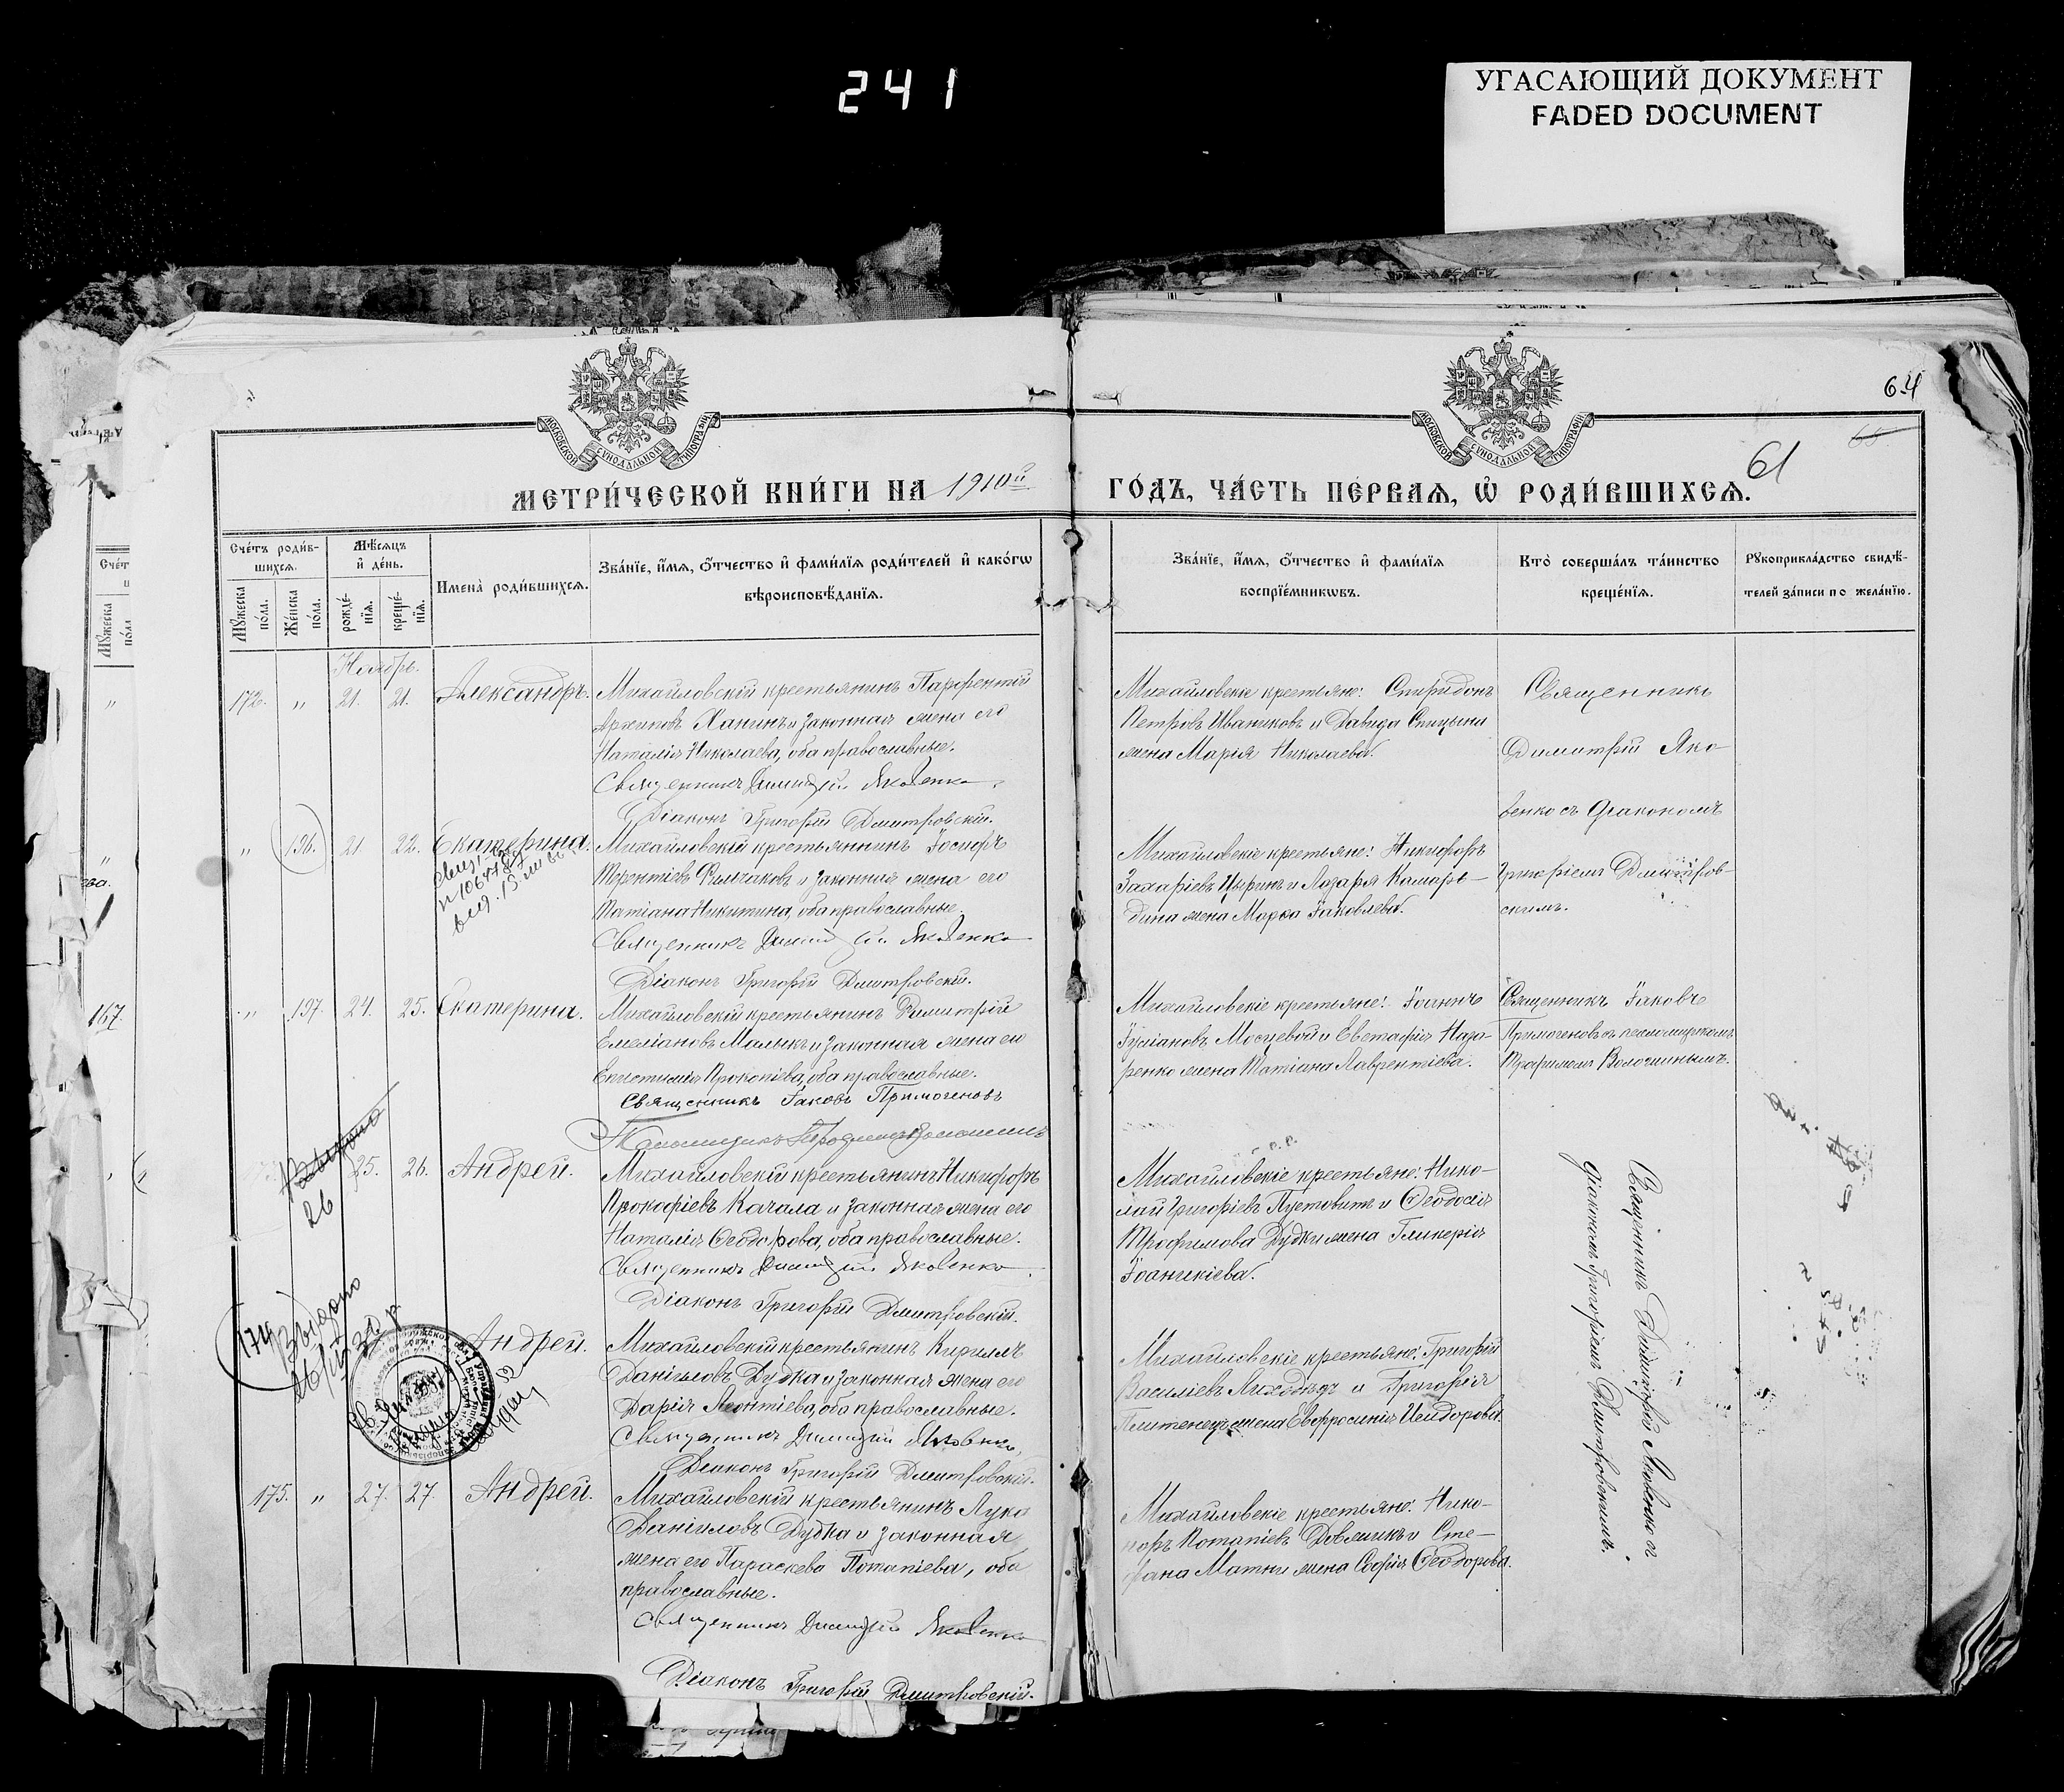 241
УГАСАЮЩИЙ ДОКУМЕНТ
FADED DOCUMENT
64
61
65
МОСКОВСКОЙ СѴНОДАЛЬНОЙ ТИПОГРАФІИ
МОСКОВСКОЙ СѴНОДАЛЬНОЙ ТИПОГРАФІИ
МЕТРИ́ЧЕСКОЙ КНИ́ГИ НА 1910й ГО́ДЪ, ЧА́СТЬ ПЕ́РВАѦ, Ѡ҆ РОДИ́ВШИХСѦ.
Сче́тъ роди́в-
шихсѧ.
Мꙋ́жеска по́ла.
Же́нска по́ла.
Мѣ́сѧцъ
и҆ де́нь.
рожде́-
нїѧ.
креще́-
нїѧ.
И҆мена̀ роди́вшихсѧ.
Зва́нїе, и҆́мѧ, ѻ҆́тчество и҆ фами́лїѧ роди́телей и҆ како́гѡ
вѣроисповѣ́данїѧ.
Зва́нїе, и҆́мѧ, ѻ҆́тчество и҆ фами́лїѧ
воспрїе́мникѡвъ.
Кто̀ соверша́лъ та́инство
креще́нїѧ.
Рꙋкоприкла́дство свидѣ́-
телей за́писи по жела́нїю.
Ноябрь.
172. " 21. 21. Александръ.
Михайловскій крестьянинъ Парфентій
Архиповъ Ханинъ и законная жена его
Наталія Николаева, оба православные.
Священникъ Димитрій Яковенко.
Діаконъ Григорій Дмитровскій.
Михайловскіе крестьяне: Спиридонъ
Петровъ Иваниковъ и Давида Спицына
жена Марія Николаева.
Священникъ
Димитрій Яко-
венко съ діакономъ
Григоріемъ Дмитров-
скимъ.
" 136. 21. 22. Екатерина.
Михайловскій крестьянинъ Іосифъ
Терентіевъ и законная жена его
Татіана Никитина, оба православные.
Священникъ Димитрій Яковенко
Діаконъ Григорій Дмитровскій.
Михайловскіе крестьяне: Никифоръ
Захаріевъ Цыринъ и Лазаря Камары-
дина жена Марѳа Іаковлева.
" 137. 24. 25. Екатерина.
Михайловскій крестьянинъ Димитрій
Емеліановъ Малыкъ и законная жена его
Епистимія Прокопіева, оба православные.
Священникъ Іаковъ Примогеновъ
Михайловскіе крестьяне: Іоаннъ
Іуліановъ Мосцевой и Евстафія Наза-
ренко жена Татіана Лаврентіева.
Священникъ Іаковъ
Примогеновъ съ псаломщикомъ
Трофимомъ Волошинымъ.
26
25. 26. Андрей.
Михайловскій крестьянинъ Никифоръ
Прокофіевъ Качала и законная жена его
Наталія Ѳеодорова, оба православные.
Священникъ Димитрій Яковенко.
Діаконъ Григорій Дмитровскій.
Михайловскіе крестьяне: Нико-
лай Григоріевъ Пустовитъ и Ѳеодосія
Трофимова Дудки жена Гликерія
Іоанникіева.
Священникъ Димитрій Яковенко съ
діакономъ Григоріемъ Дмитровскимъ.
174 Андрей.
Михайловскій крестьянинъ Кириллъ
Даніиловъ Дудка и законная жена его
Дарія Леонтіева, оба православные.
Священникъ Димитрій Яковенко,
Діаконъ Григорій Дмитровскій.
Михайловскіе крестьяне: Григорій
Василіевъ Лиходѣдъ и Григорія
Плитенецъ жена Евфросинія Исидорова.
175. " 27. 27. Андрей.
Михайловскій крестьянинъ Лука
Даніиловъ Дудка и законная
жена его Параскева Потапіева, оба
православные.
Священникъ Димитрій Яковенко
Діаконъ Григорій Дмитровскій.
Михайловскіе крестьяне: Нико-
норъ Потапіевъ Довжикъ и Сте-
фана Матни жена Софія Ѳеодорова.
167.